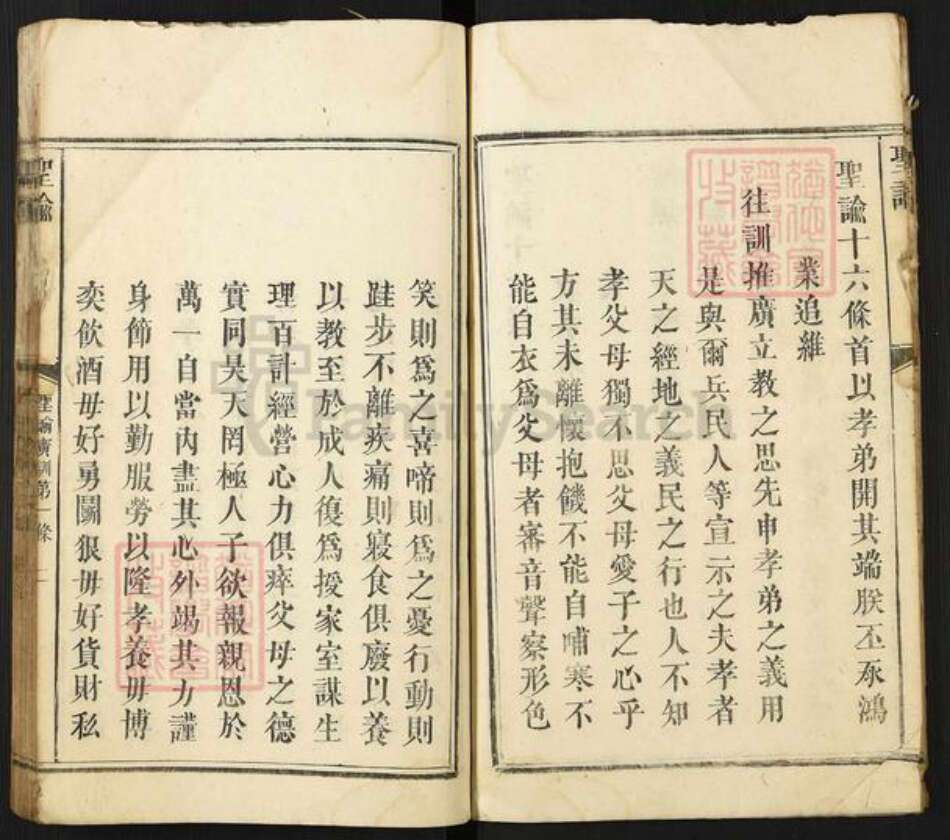 聖諭
聖諭十六條首以孝弟開其端朕丕承鴻
業追維
往訓推廣立教之思先申孝弟之義用
是與爾兵民人等宣示之夫孝者
天之經地之義民之行也人不知
孝父母獨不思父母愛子之心乎
方其未離懷抱饑不能自哺寒不
能自衣為父母者審音聲察形色
笑則為之喜啼則為之憂行動則
跬步不離疾痛則寢食俱廢以養
以教至於成人復為授家室謀生
理百計經營心力俱瘁父母之德
實同昊天罔極人子欲報親恩於
萬一自當內盡其心外竭其力謹
身節用以勤服勞以隆孝養毋博
奕飲酒毋好勇鬭狠毋好貨財私
聖諭
聖諭廣訓第一條
FamilySearch